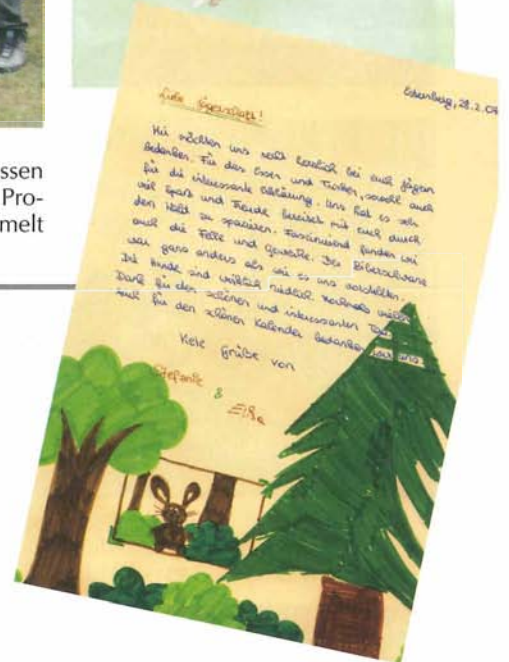 ssen
Pro-
melt
Eschenberg, 28.2.04
Liebe Jägerschaft!
Wir möchten uns recht herzlich bei euch Jägern
bedanken. Für das Essen und Trinken, sowohl auch
für die interessante Erklärung. Uns hat es sehr
viel Spaß und Freude bereitet mit euch durch
den Wald zu spazieren. Faszinierend fanden wir
auch die Felle und Geweihe. Der Biberschwanz
war ganz anders als wir es uns vorstellten.
Die Hunde sind wirklich niedlich. Nochmals vielen
Dank für den schönen und interessanten Tag.
Auch für den schönen Kalender bedanken wir uns.
Viele Grüße von
Stefanie &